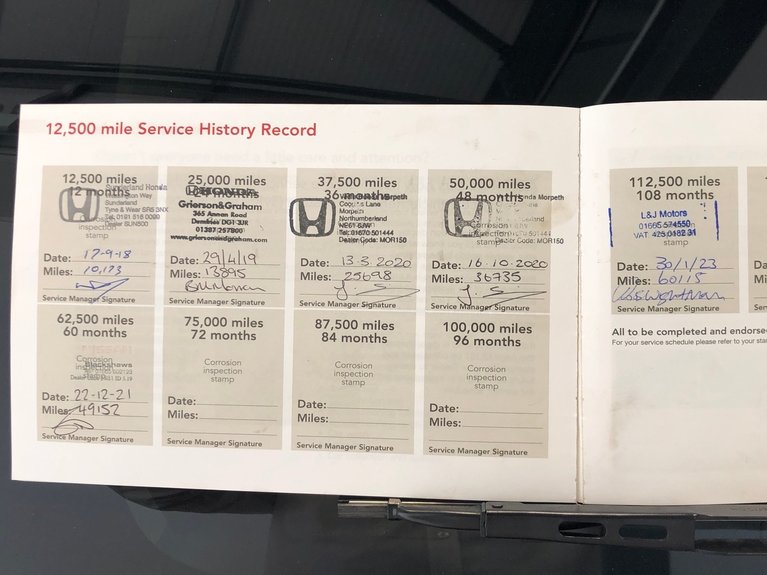 12,500 mile Service History Record
12,500 miles
12 months
Sunderland Honda
Sunderland
Tyne & Wear SR5 3NX
Tel: 0191 516 0000
Dealer Code: SUN500
stamp
Date: 17-9-18
Miles: 10,173
Service Manager Signature
25,000 miles
HONDA
Grierson&Graham
365 Annan Road
Dumfries DG1 3JR
01387 257800
www.griersonandgraham.com
Date: 29/4/19
Miles: 13895
Service Manager Signature
37,500 miles
36 months
Morpeth
Coopies Lane
Morpeth
Northumberland
NE61 6JW
Tel: 01670 501444
Dealer Code: MOR150
Date: 13.3.2020
Miles: 25698
Service Manager Signature
50,000 miles
48 months
Honda Morpeth
Corrosion
inspection
stamp
Dealer Code: MOR150
Date: 16.10.2020
Miles: 36735
Service Manager Signature
62,500 miles
60 months
Corrosion
inspection
stamp
Blackshaws
Date: 22-12-21
Miles: 49152
Service Manager Signature
75,000 miles
72 months
Corrosion
inspection
stamp
Date:
Miles:
Service Manager Signature
87,500 miles
84 months
Corrosion
inspection
stamp
Date:
Miles:
Service Manager Signature
100,000 miles
96 months
Corrosion
inspection
stamp
Date:
Miles:
Service Manager Signature
112,500 miles
108 months
L&J Motors
01665 574550
VAT 475 0182 31
Date: 30/1/23
Miles: 60115
Service Manager Signature
All to be completed and endorse
For your service schedule please refer to your